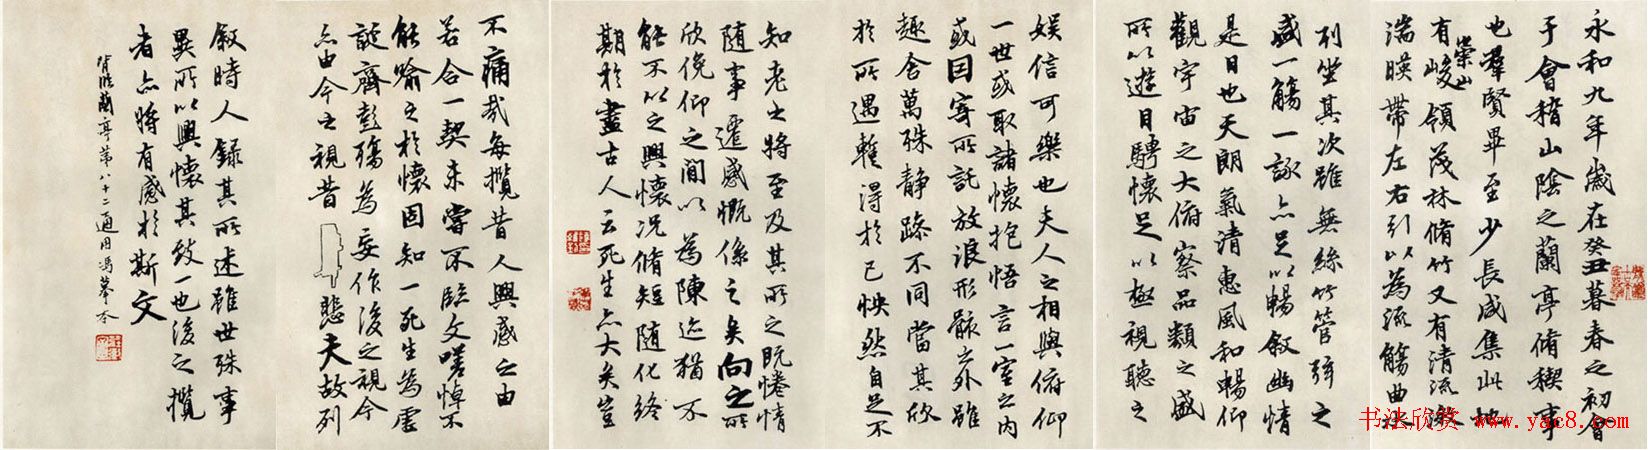 永和九年歲在癸丑暮春之初會
于會稽山陰之蘭亭脩稧事
也羣賢畢至少長咸集此地
有崇山峻領茂林脩竹又有清流激
湍暎帶左右引以為流觴曲水
列坐其次雖無絲竹管弦之
盛一觴一詠亦足以暢敘幽情
是日也天朗氣清惠風和暢仰
觀宇宙之大俯察品類之盛
所以遊目騁懷足以極視聽之
娛信可樂也夫人之相與俯仰
一世或取諸懷抱悟言一室之內
或因寄所託放浪形骸之外雖
趣舍萬殊靜躁不同當其欣
於所遇暫得於己怏然自足不
知老之將至及其所之既惓情
隨事遷感慨係之矣向之所
欣俛仰之閒以為陳迹猶不
能不以之興懷況脩短隨化終
期於盡古人云死生亦大矣豈
不痛哉每攬昔人興感之由
若合一契未嘗不臨文嗟悼不
能喻之於懷固知一死生為虛
誕齊彭殤為妄作後之視今
亦由今之視昔悲夫故列
敘時人錄其所述雖世殊事
異所以興懷其致一也後之攬
者亦將有感於斯文
背臨蘭亭第八十二通用馮摹本
书法欣赏 www.yac8.com